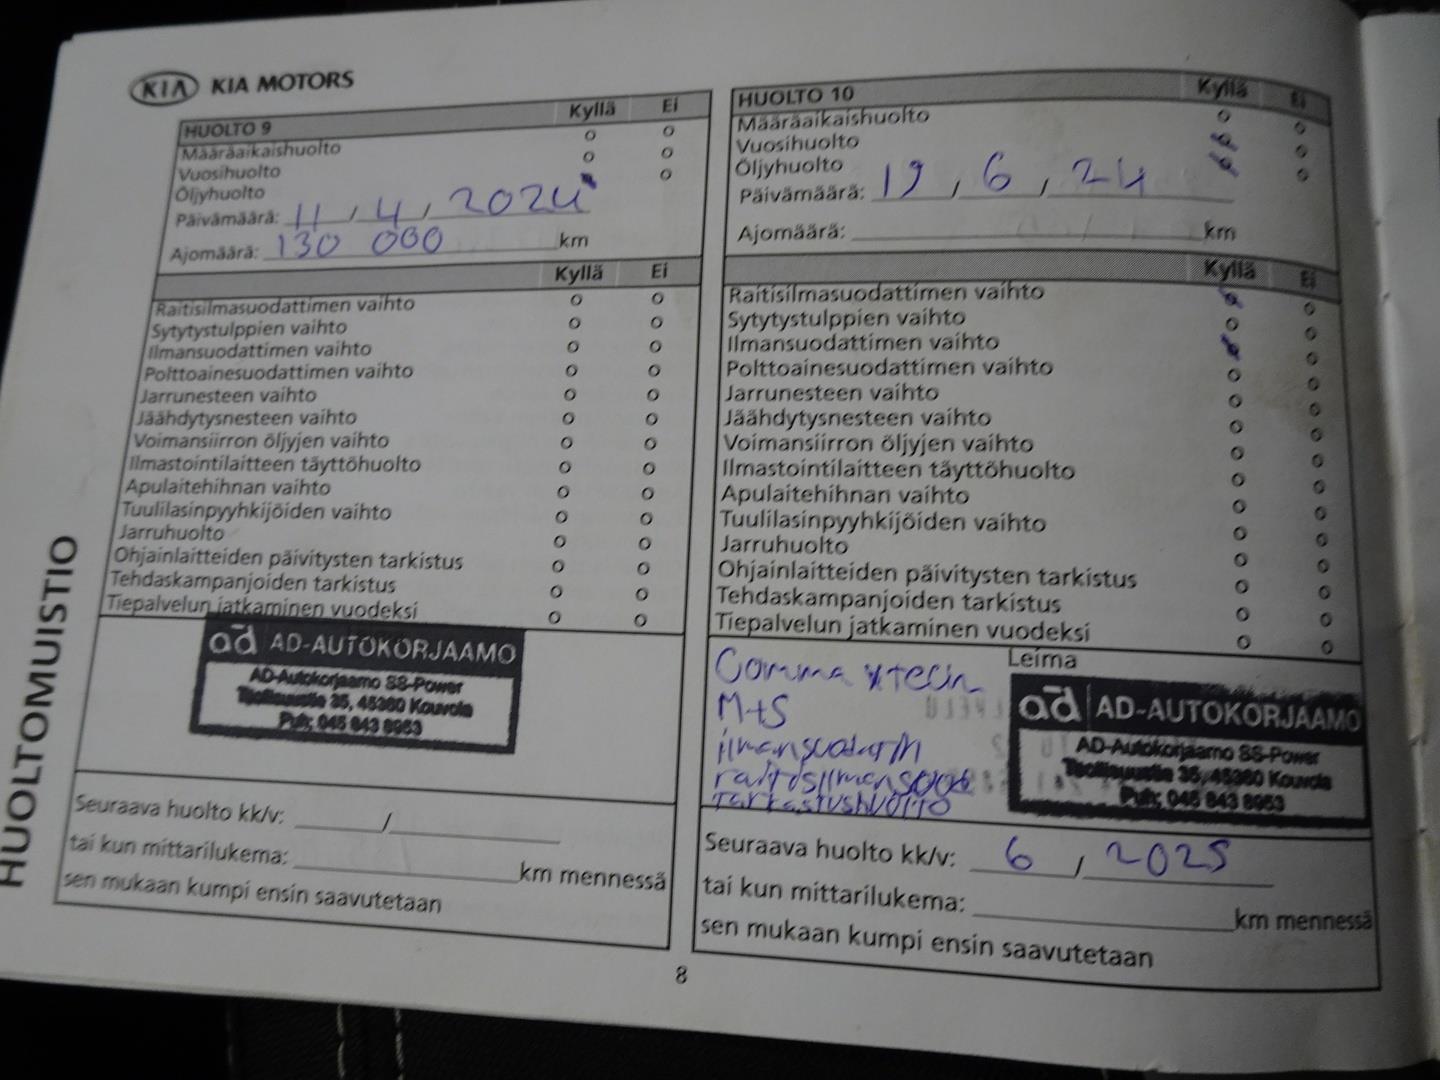 KIA KIA MOTORS
HUOLTO 9 Kyllä Ei
Määräaikaishuolto o o
Vuosihuolto o o
Öljyhuolto o
Päivämäärä: 11 / 4 / 2024
Ajomäärä: 130 000 km
Kyllä Ei
Raitisilmasuodattimen vaihto o o
Sytytystulppien vaihto o o
Ilmansuodattimen vaihto o o
Polttoainesuodattimen vaihto o o
Jarrunesteen vaihto o o
Jäähdytysnesteen vaihto o o
Voimansiirron öljyjen vaihto o o
Ilmastointilaitteen täyttöhuolto o o
Apulaitehihnan vaihto o o
Tuulilasinpyyhkijöiden vaihto o o
Jarruhuolto o o
Ohjainlaitteiden päivitysten tarkistus o o
Tehdaskampanjoiden tarkistus o o
Tiepalvelun jatkaminen vuodeksi o o
ad AD-AUTOKORJAAMO
AD-Autokorjaamo SS-Power
35, 45360 Kouvola
Puh; 045 843 8953
Seuraava huolto kk/v: /
tai kun mittarilukema: km mennessä
sen mukaan kumpi ensin saavutetaan
HUOLTO 10 Kyllä Ei
Määräaikaishuolto o o
Vuosihuolto o
Öljyhuolto o
Päivämäärä: 19 / 6 / 24
Ajomäärä: km
Kyllä Ei
Raitisilmasuodattimen vaihto o
Sytytystulppien vaihto o o
Ilmansuodattimen vaihto o
Polttoainesuodattimen vaihto o o
Jarrunesteen vaihto o o
Jäähdytysnesteen vaihto o o
Voimansiirron öljyjen vaihto o o
Ilmastointilaitteen täyttöhuolto o o
Apulaitehihnan vaihto o o
Tuulilasinpyyhkijöiden vaihto o o
Jarruhuolto o o
Ohjainlaitteiden päivitysten tarkistus o o
Tehdaskampanjoiden tarkistus o o
Tiepalvelun jatkaminen vuodeksi o o
Leima
Comma xtech
M+S
tarkastushuolto
ad AD-AUTOKORJAAMO
AD-Autokorjaamo SS-Power
35, 45360 Kouvola
Puh; 045 843 8953
Seuraava huolto kk/v: 6 / 2025
tai kun mittarilukema: km mennessä
sen mukaan kumpi ensin saavutetaan
HUOLTOMUISTIO
8